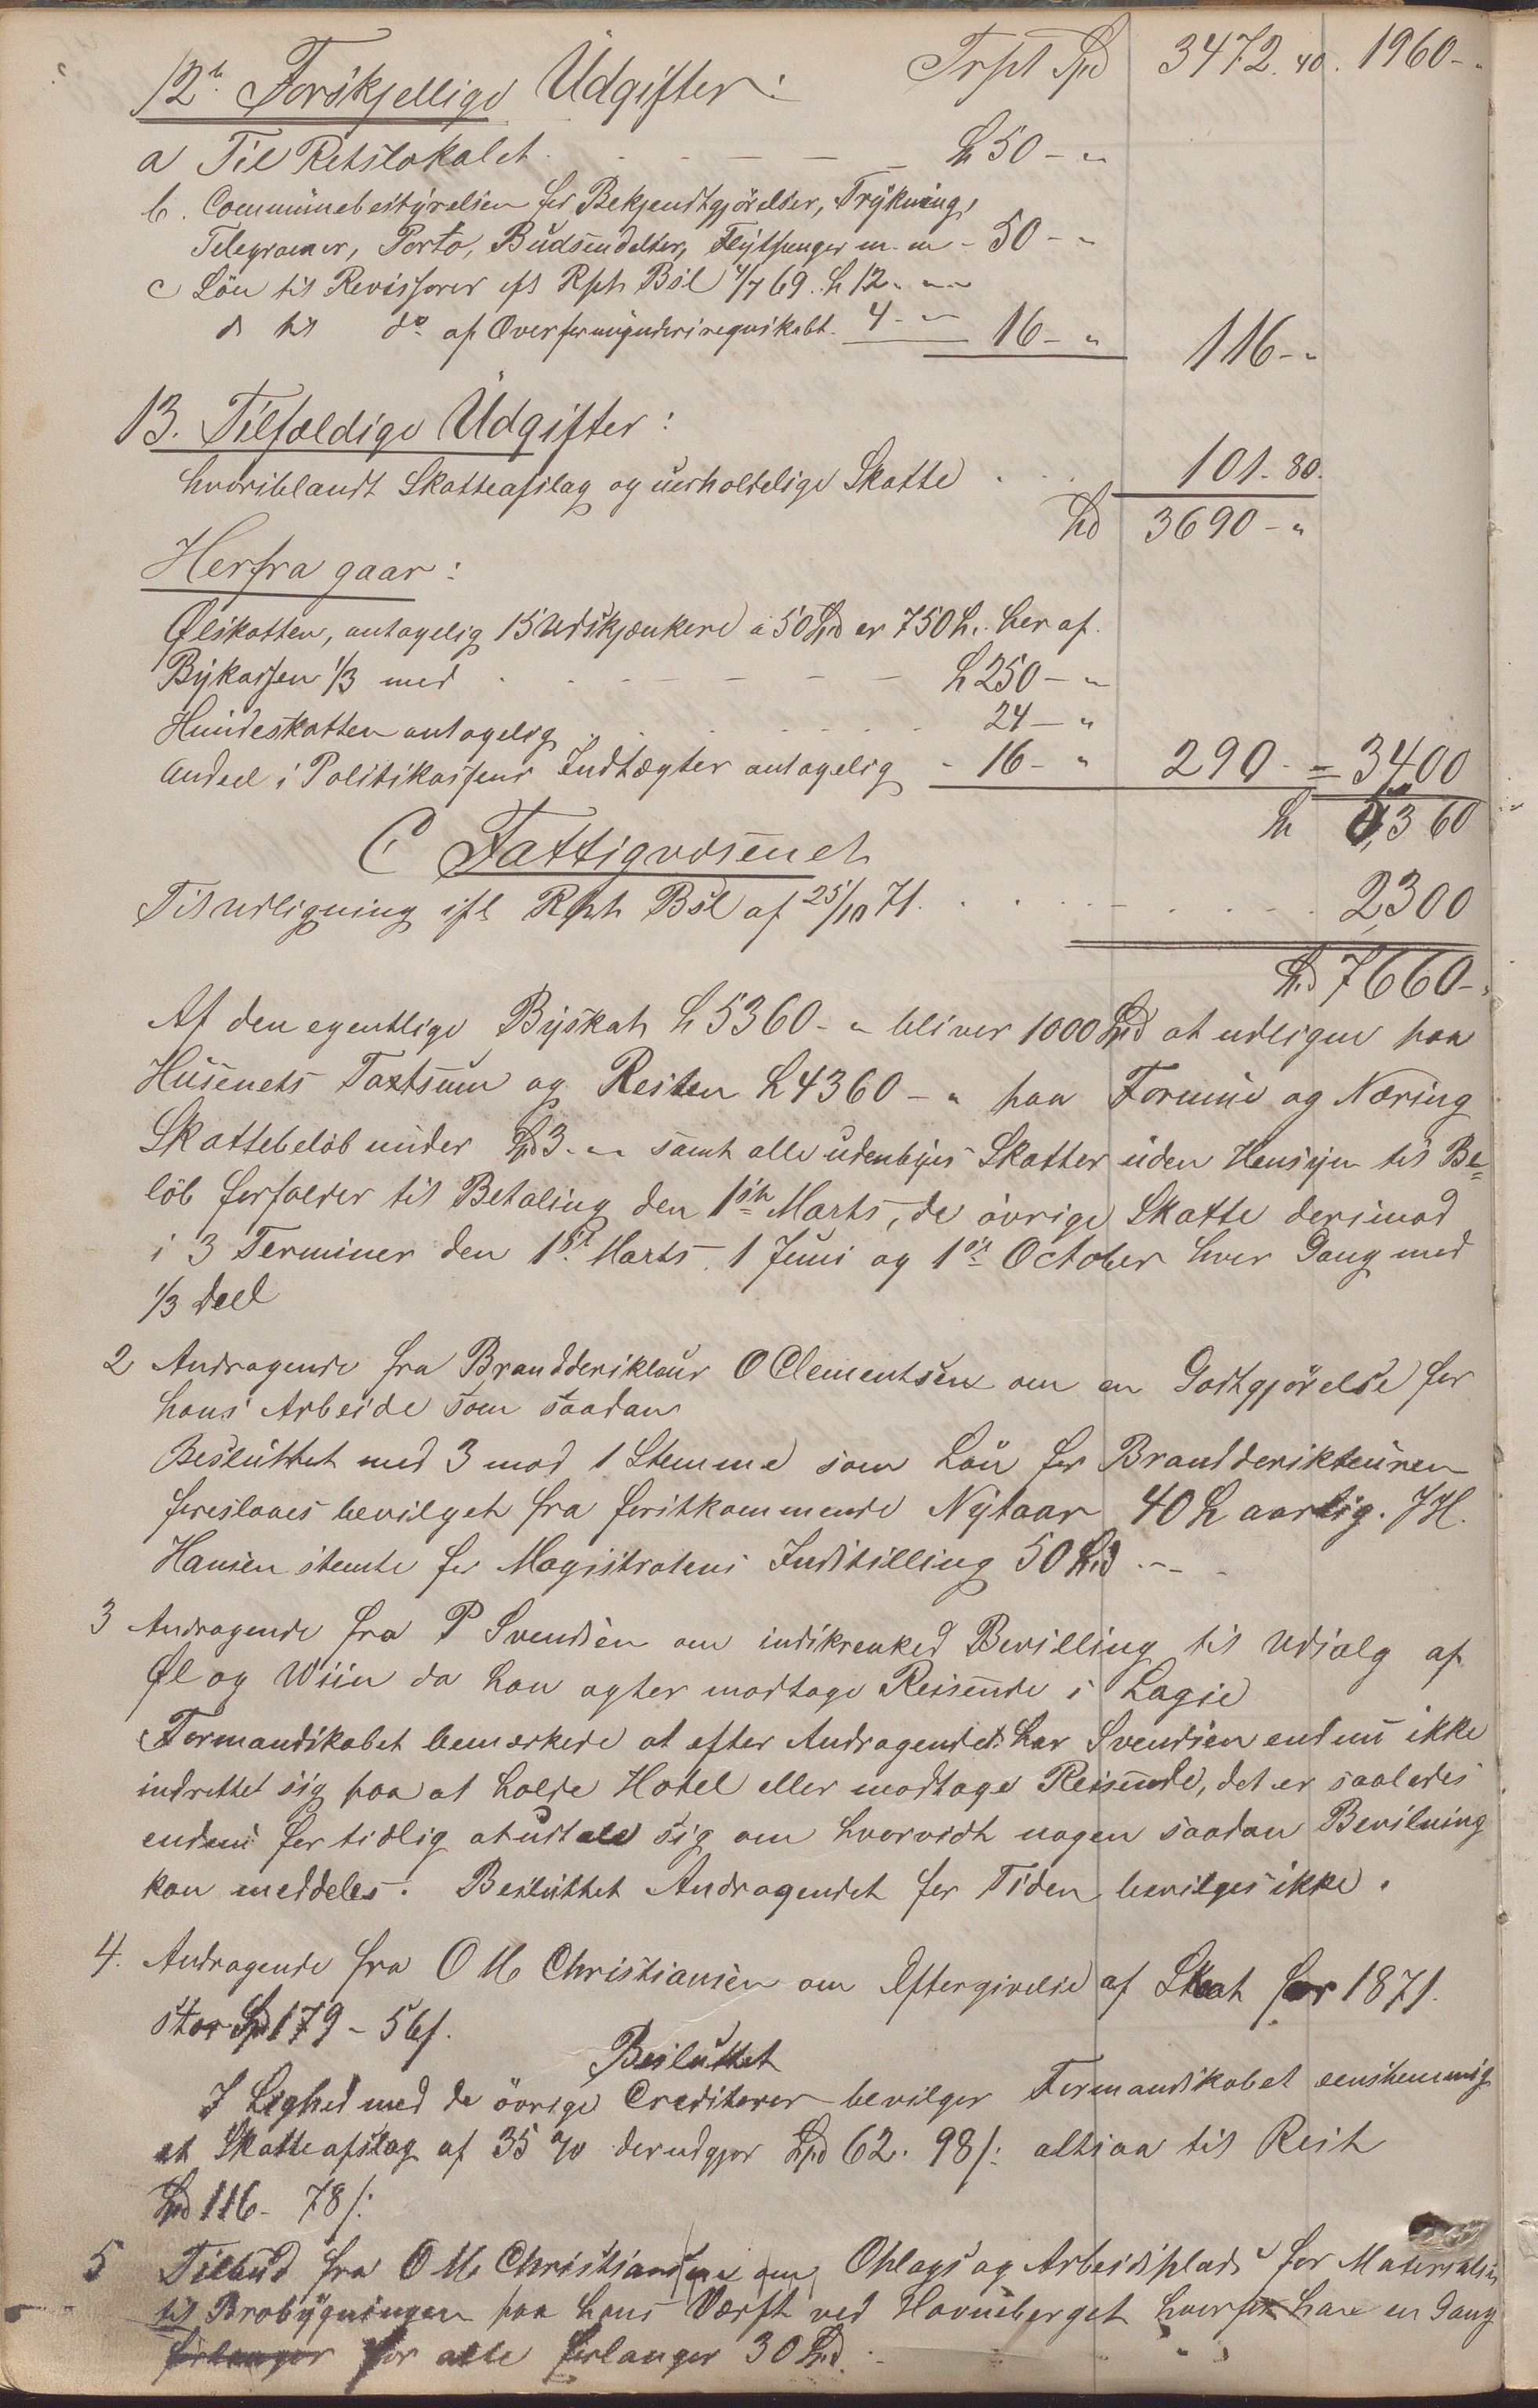 Trpt Spd 3472. 40. 1960 - "
12. Forskjellige Udgifter:
a Til Retslokalet . . - - - - - Sp 50 - "
b. Communebestyrelsen for Bekjendtgjörelser, Trykning,
Telegramer, Porto, Budsendelser, Flytpenger m. m - 50 - "
c Lön til Revisorer ift Rpts Bsl 4/7 69. Sp 12 - "
d til do af Overformynderiregnskabt. 4 - " 16 - " 116 - "
13. Tilfældige Udgifter:
hvoriblandt Skatteafslag og uerholdelige Skatte . . . 101 - 80.
Spd 3690 - "
Herfra gaar:
Ølskatten, antagelig 15 Udskjænkere a 50 Spd er 750 Sp. her af
Bykassen 1/3 med . . - - - - - Sp 250 - "
Hundeskatten antagelig . . . . . . . 24 - "
Andeel i Politikassens Indtægter antagelig - 16 - " 290 - = 3400
Sp 5360
C Fattigvæsenet
Til Udligning ifl Rpts Bsl af 25/10 71. . . . . - . . . . 2300
Spd 7660 - "
Af den egentlige Byskat Sp 5360 - " bliver 1000 Spd at udligne paa
Husenets Taxtsum og Resten Sp 4360 - " paa Formue og Næring
Skattebelöb under Spd 3 - " samt alle udenbyes Skatter uden Hensyn til Be=
löb forfalder til Betaling den 1ste Marts, de övrige Skatte derimod
i 3 Terminer den 1st Marts. 1 Juni og 1st October hver Gang med
1/3 deel
2 Andragende fra Branddirikteur O Clementsen om en Godtgjörelse for
hans Arbeide som saadan
Besluttet med 3 mod 1 Stemme som Lön for Branddirikteuren
foreslaaes bevilget fra førstkommende Nytaar 40 Sp aarlig. J H.
Hansen stemte for Magistratens Indstilling 50 Spd. - -
3 Andragende fra P Svendsen om indskrenked Bevilling til Udsalg af
Øl og Wiin da han agter modtage Reisende i Logie
Formandskabet bemærkede at efter Andragendet har Svendsen endnu ikke
indrettet sig paa at holde Hotel eller modtage Reisende, det er saaledes
endnu for tidlig at udtale sig om hvorvidt nogen saadan Bevilning
kan meddeles. Besluttet Andragendet for Tiden bevilges ikke.
4. Andragende fra O M Christiansen om Eftergivelse af Skat for 1871.
stor Spd 179 - 56 s.
Besluttet
I Lighed med de övrige Creditorer bevilger Formandskabet eenstemmig
et Skatteafslag af 35 % der udgjør Spd 62. 98 s: altsaa til Rest
Spd 116 - 78 s:
5 Tilbud fra O M Christiansen om Oplags og Arbeidsplads for Materialier
til Brobygningen paa hans Værft ved Havneberget hvorfor han en Gang
forlanger for alle forlanger 30 Spd.